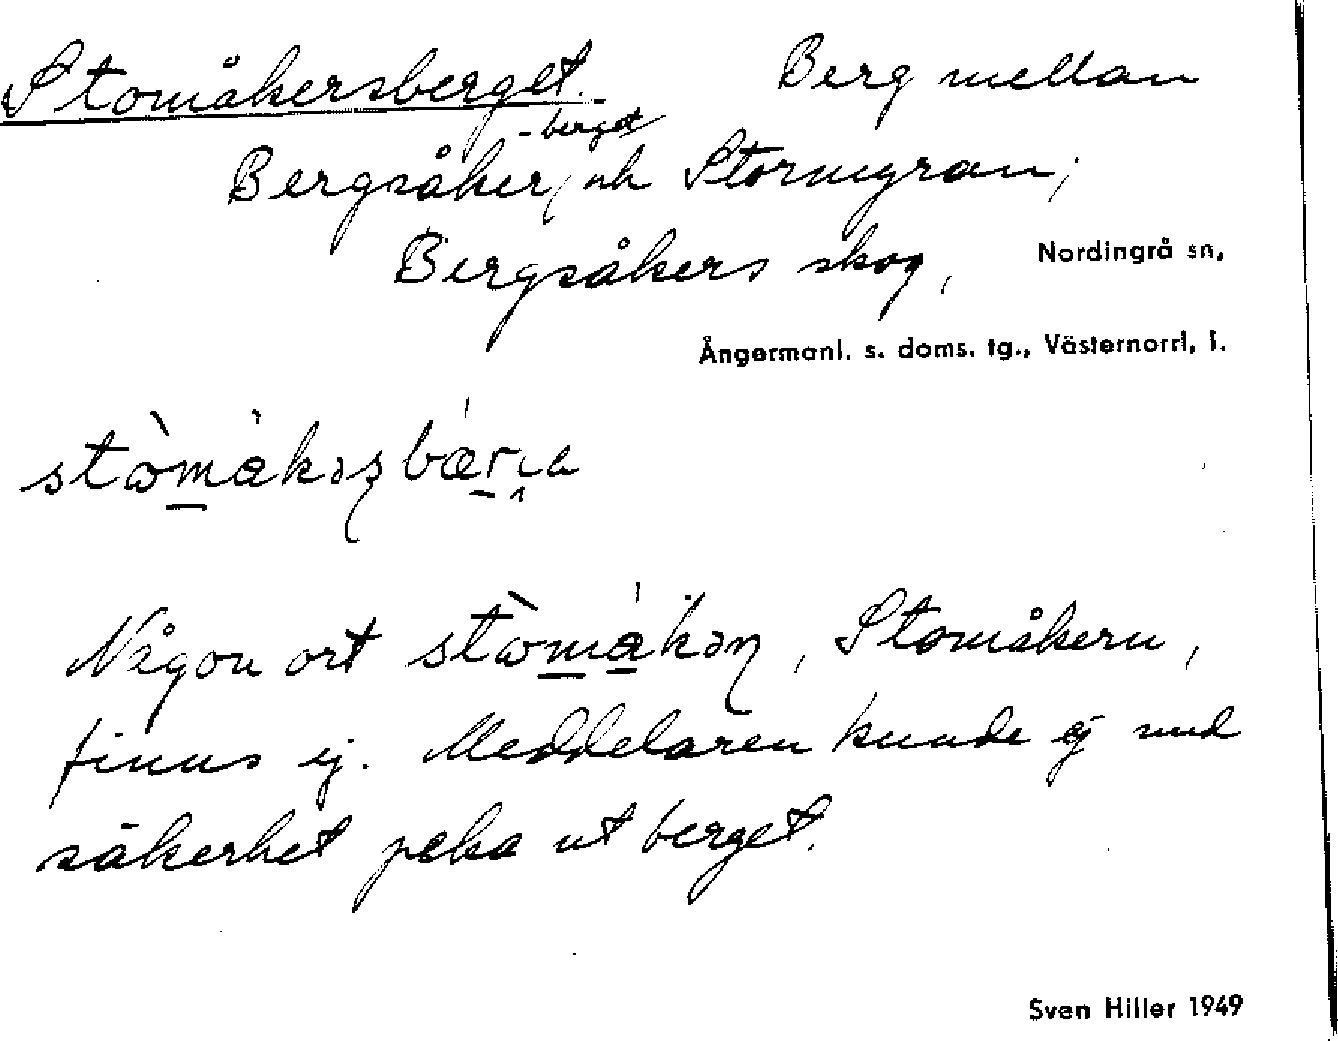 Stomåkersberget. Berg mellan
-berget
Bergsåker, och Stormyran,
Bergsåkers skog, Nordingrå sn,
Ångermanl. s. doms. tg., Västernorrl. l.
stòmåkəʂbærɪa
Någon ort stòmåkəɳ, Stomåkern,
finns ej. Meddelaren kunde ej med
säkerhet peka ut berget.
Sven Hiller 1949